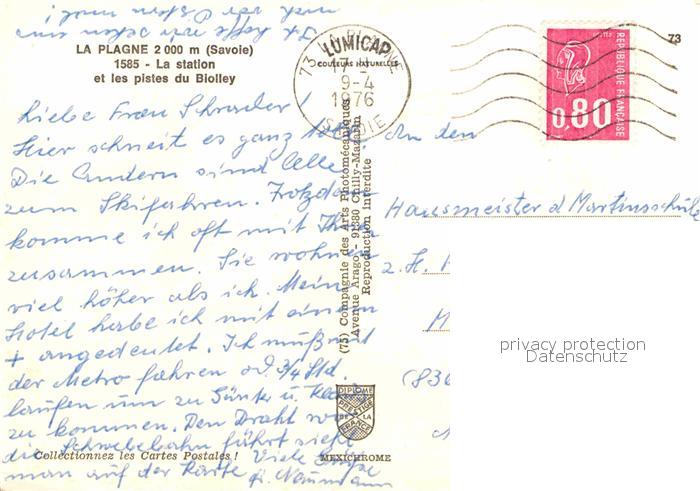 Ich hoffe wir sehen uns
LA PLAGNE 2 000 m (Savoie)
1585 - La station
et les pistes du Biolley
Liebe Frau Schrader!
Hier schneit es ganz toll.
Die Anderen sind alle
zum Skifahren. Trotzdem
komme ich oft mit Ihnen
zusammen. Sie wohnen
viel höher als ich. Mein
Hotel habe ich mit einem
+ angedeutet. Ich muß mit
der Metro fahren od. 3/4 Std.
laufen um zu Günter u.
zu kommen. Den Draht wo
die Schwebebahn fährt sieht
man auf der Karte Viele Grüße
Naumann
Collectionnez les Cartes Postales !
LUMICAP
COULEURS NATURELLES
73 LA PLAGNE
9-4
1976
SAVOIE
(75) Compagnie des Arts Photomécaniques
Avenue Arago - 91380 Chilly-Mazarin
Reproduction interdite
DIPLOME
PRESTIGE
DE LA
FRANCE
MEXICHROME
REPUBLIQUE FRANÇAISE
0,80
73
An den
Hausmeister d Martinsschule
z. H.
M
(830
privacy protection
Datenschutz